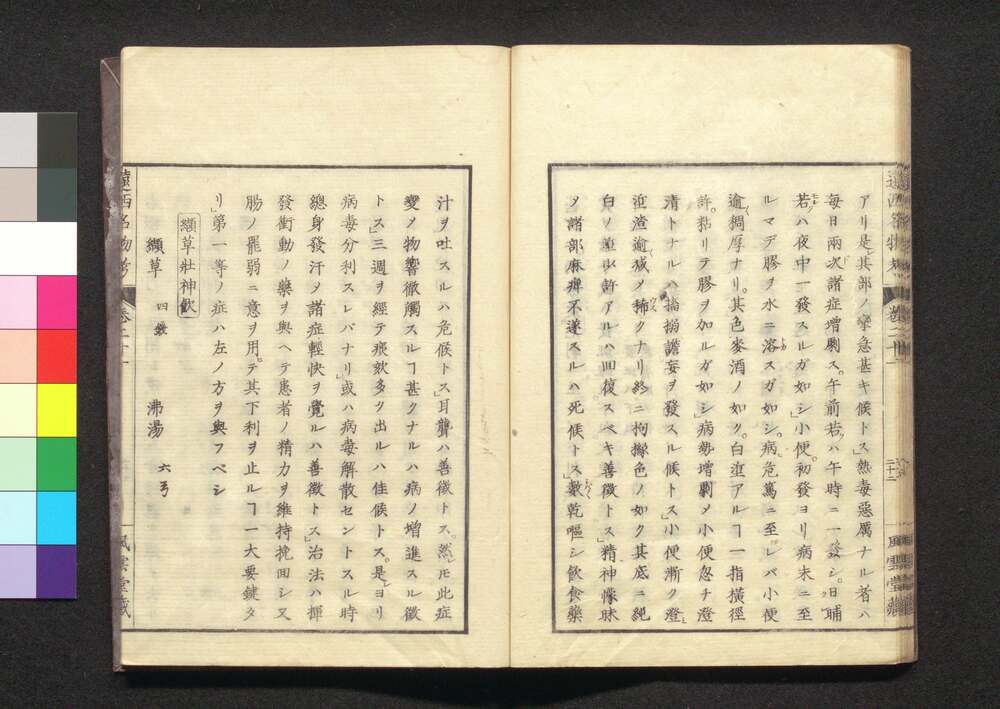 アリ是其部ノ攣急甚キ候トス熱毒惡厲ナル者ハ
毎日兩次諸症増劇ス午前若ハ午時ニ一發シ日晡
若ハ夜中一發スルガ如シ小便初發ヨリ病末ニ至
ルマデ膠ヲ水ニ溶スガ如シ病危篤ニ至レバ小便
逾稠厚ナリ其色麥酒ノ如ク白滓アルヿ一指横徑
許粘リテ膠ヲ加ルガ如シ病勢増劇メ小便忽チ澄
清トナルハ搐搦譫妄ヲ發スル候トス小便漸ク澄
滓渣逾減メ稀クナリ終ニ枸櫞色ノ如ク其底ニ純
白ノ滓少許アルハ回復スベキ善徴トス精神懞昧
ソノ諸部麻痺不遂スルハ死候トス數乾嘔シ飲食藥
汁ヲ吐スルハ危候トス耳聾ハ善徴トス然レモ此症
變メ物響微觸スルヿ甚クナルハ病ノ増進スル徴
トス三週ヲ經テ痰飲多ク出ルハ佳候トス是ヨリ
病毒分利スレバナリ或ハ病毒解散セントスル時
總身發汗メ諸症輕快ヲ覺ルハ善徴トス治法ハ揮
發衝動ノ藥ヲ與ヘテ患者ノ精力ヲ維持挽回シ又
腸ノ罷弱ニ意ヲ用テ其下利ヲ止ルヿ一大要鍵タ
リ第一等ノ症ハ左ノ方ヲ與フベシ
纈草壯神飲
纈草 四錢 沸湯 六弓
遠西名物考 卷二十一
風雲堂藏